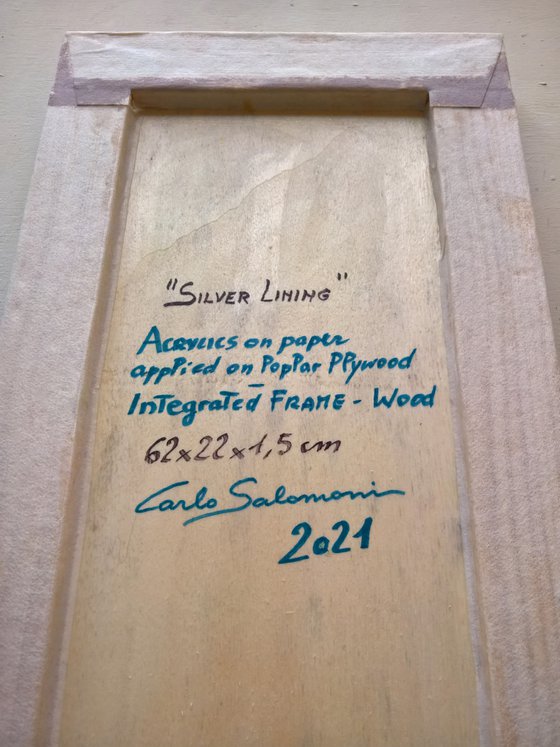 "Silver Lining"
Acrylics on paper
applied on Poplar Plywood
Integrated Frame - Wood
62x22x1,5 cm
Carlo Salomoni
2021